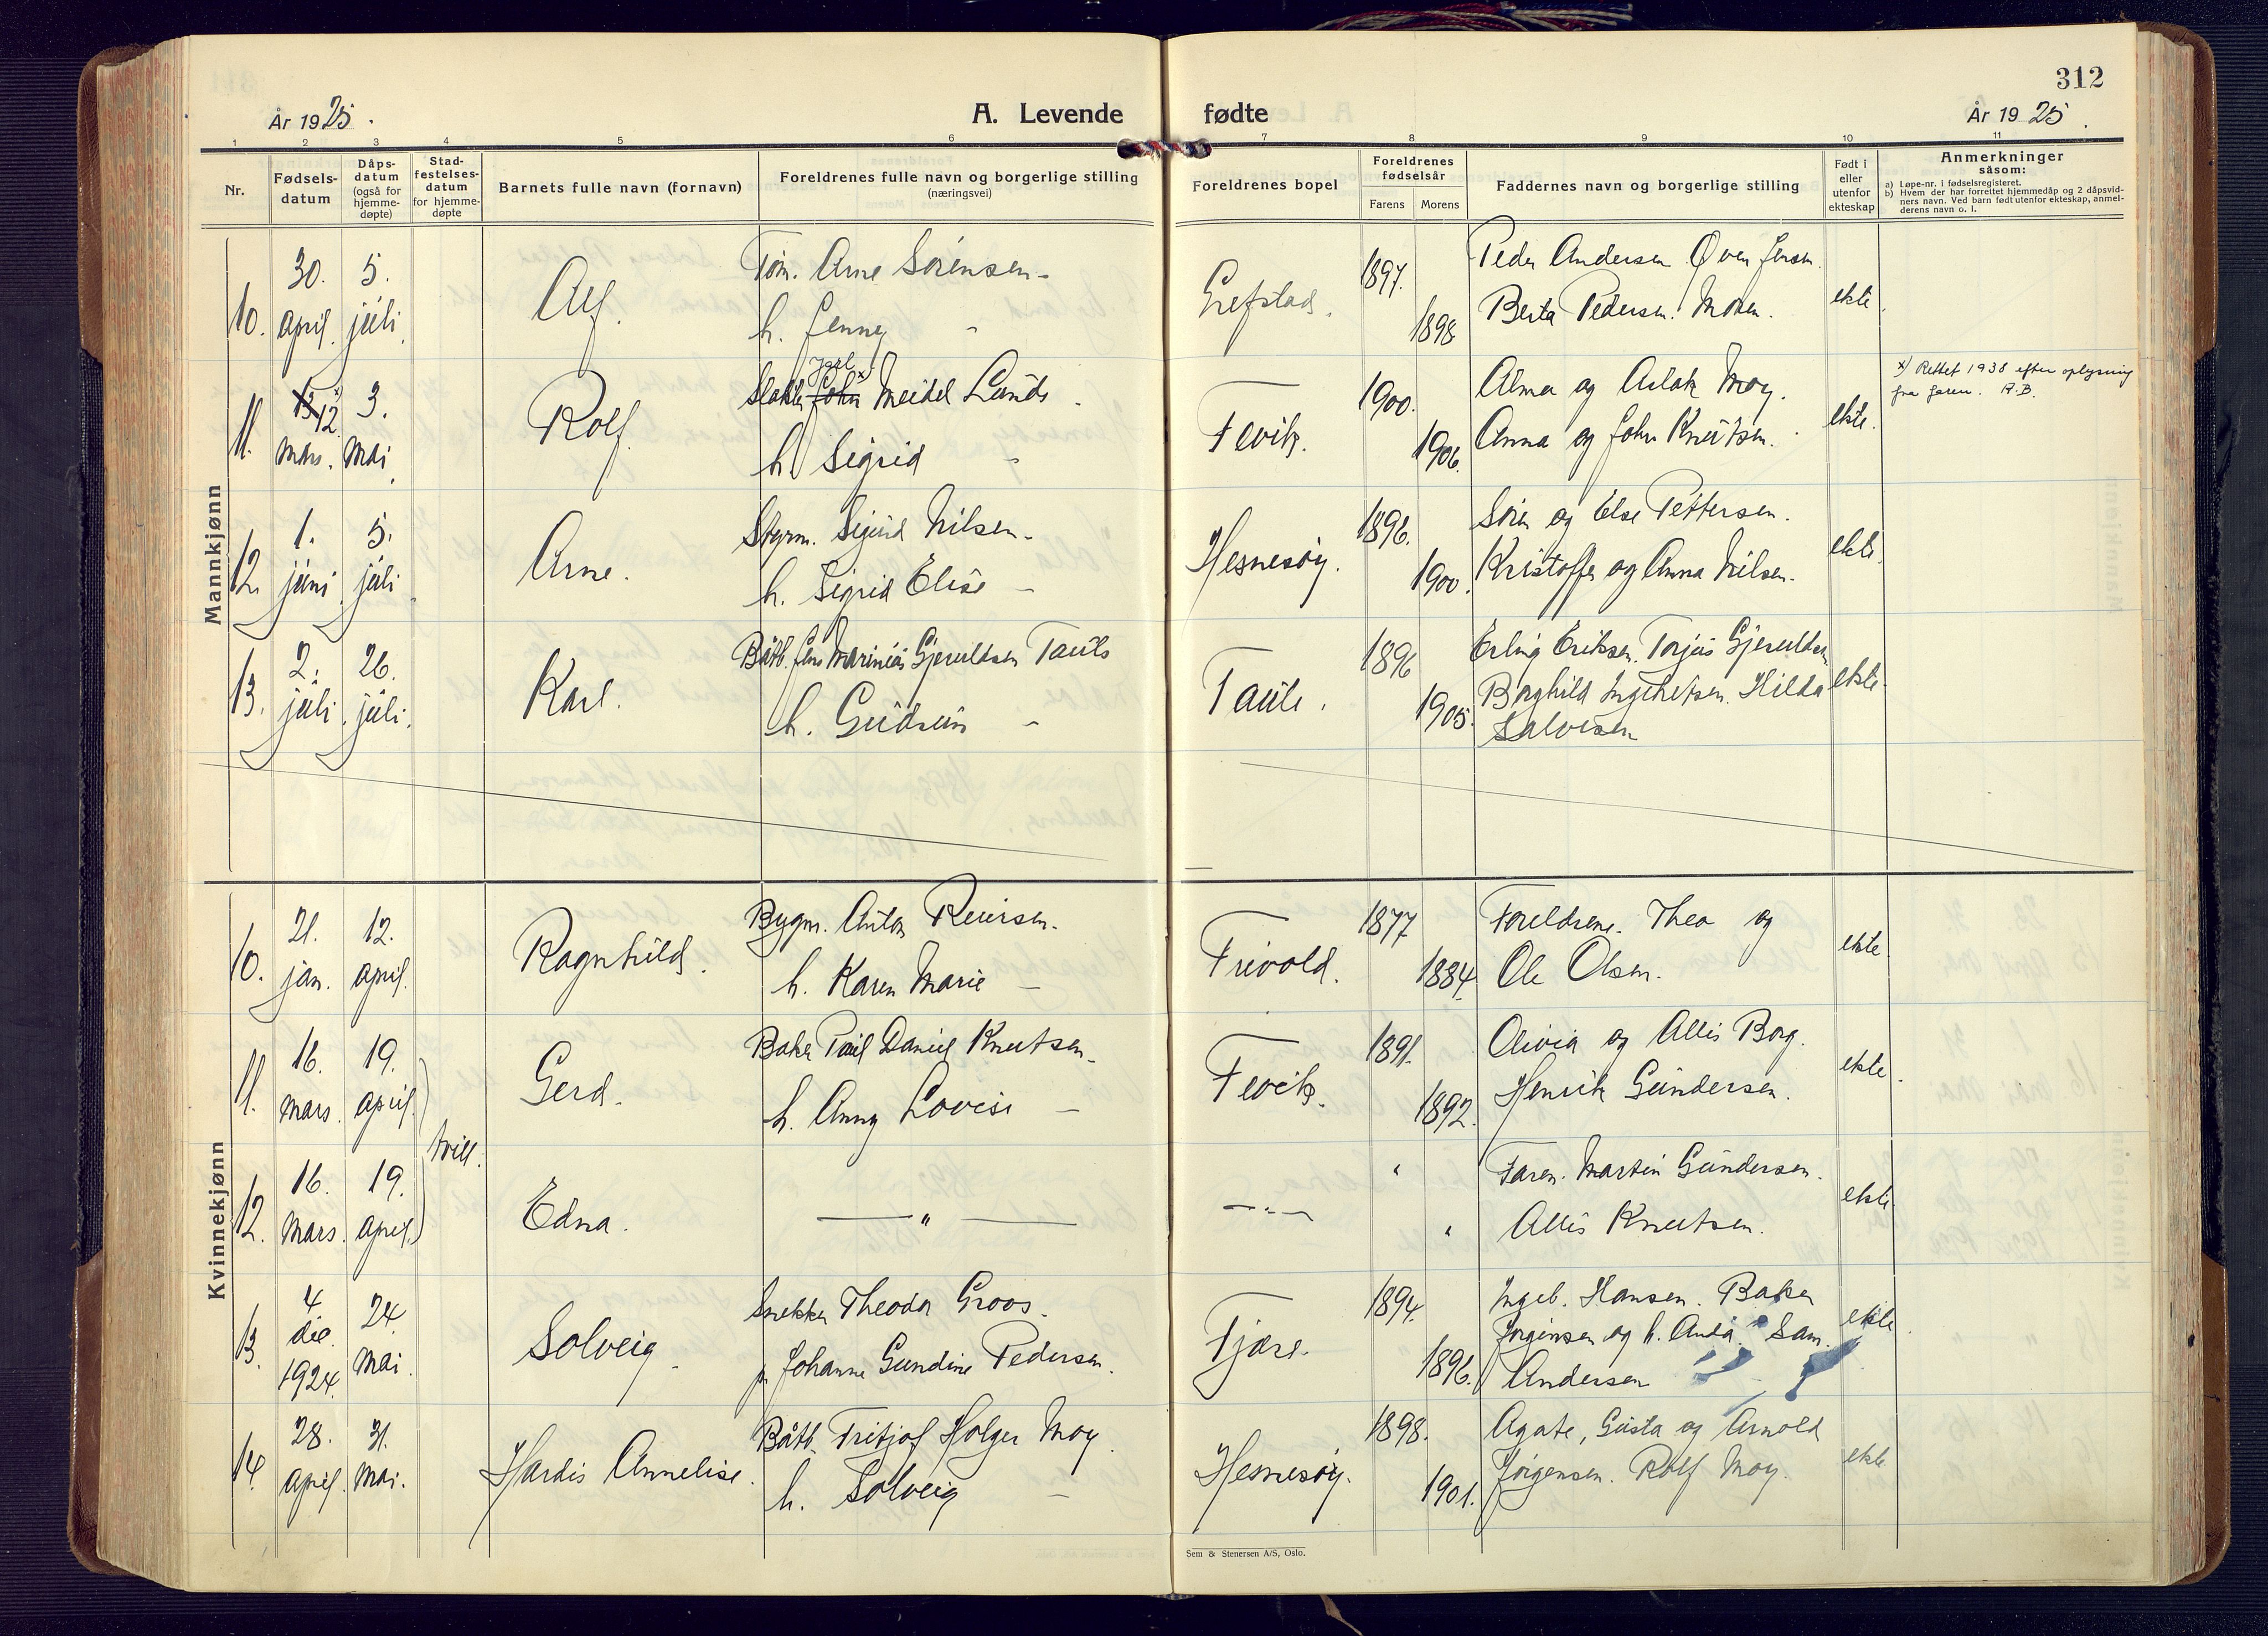 312
År 1925.
A. Levende fødte
År 1925.
1 2 3 4 5 6 7 8 9 10 11
Nr.
Fødsels-
datum
Dåps-
datum
(også for
hjemme-
døpte)
Stad-
festelses-
datum
for hjemme-
døpte
Barnets fulle navn (fornavn)
Foreldrenes fulle navn og borgerlige stilling
(næringsvei)
Foreldrenes bopel
Foreldrenes
fødselsår
Farens Morens
Faddernes navn og borgerlige stilling
Født i
eller
utenfor
ekteskap
Anmerkninger
såsom:
a) Løpe-nr. i fødselsregisteret.
b) Hvem der har forrettet hjemmedåp og 2 dåpsvid-
ners navn. Ved barn født utenfor ekteskap, anmel-
derens navn o. l.
Mannkjønn
10. 30. april. 5. juli. Alf. Tøm. Arne Sørensen - h. Jenny - Grefstad. 1897. 1898 Peder Andersen. Berta Pedersen. Moren. ekte.
11. 13 x) 12. Mars. 3. Mai. Rolf. Slakter John Jarl x) Meidel Lunde. h. Sigrid - Fevik. 1900. 1906. Alma og Aslak Moy. Anna og John Knutsen. ekte.
x) Rettet 1938 efter oplysning
fra faren. R.B.
12. 1. juni. 5. juli. Arne. Styrm. Sigurd Nilsen - h. Sigrid Elise - Hesnesøy. 1896. 1900. Søren og Else Pettersen. Kristoffer og Anna Nilsen. ekte.
13. 2. juli. 26. juli. Karl. Båtb. Jens Marinius Gjeruldsen Taule h. Gudrun - Taule. 1896 1905. Erling Eriksen. Torjus Gjeruldsen Borghild Ingebretsen. Hilda Salvesen ekte.
Kvinnekjønn
10. 21. jan. 12. april. Ragnhild. Bygm. Anton Reiersen. h. Karen Marie - Frivold. 1877 1884. Foreldrene. Thea og Ole Olsen. ekte.
11. 16. mars. 19. april. Gerd. Baker Paul Daniel Knutsen - h. Anny Lovise - Fevik. 1891. 1892. Olivia og Allis Borg. Henrik Gundersen. ekte.
tvill.
12. 16. mars. 19. april. Edna. — " — — " — " " Faren. Martin Gundersen. Allis Knutsen. ekte.
13. 4 de 1924. 24. mai. Solveig. Snekker Theodor Groos. Johanne Gundine Pedersen. Fjære. 1894. 1896. Ingeb. Hansen. Baker Jørgensen og h. Anda. Sam. Andersen ekte.
14. 28. april. 31. mai. Hardis Annelise. Båtb. Fritjof Holger Moy. h. Solveig - Hesnesøy. 1898. 1901. Agate, Gusta og Arnold Jørgensen. Rolf Moy. ekte
Sem & Stenersen A/S, Oslo.